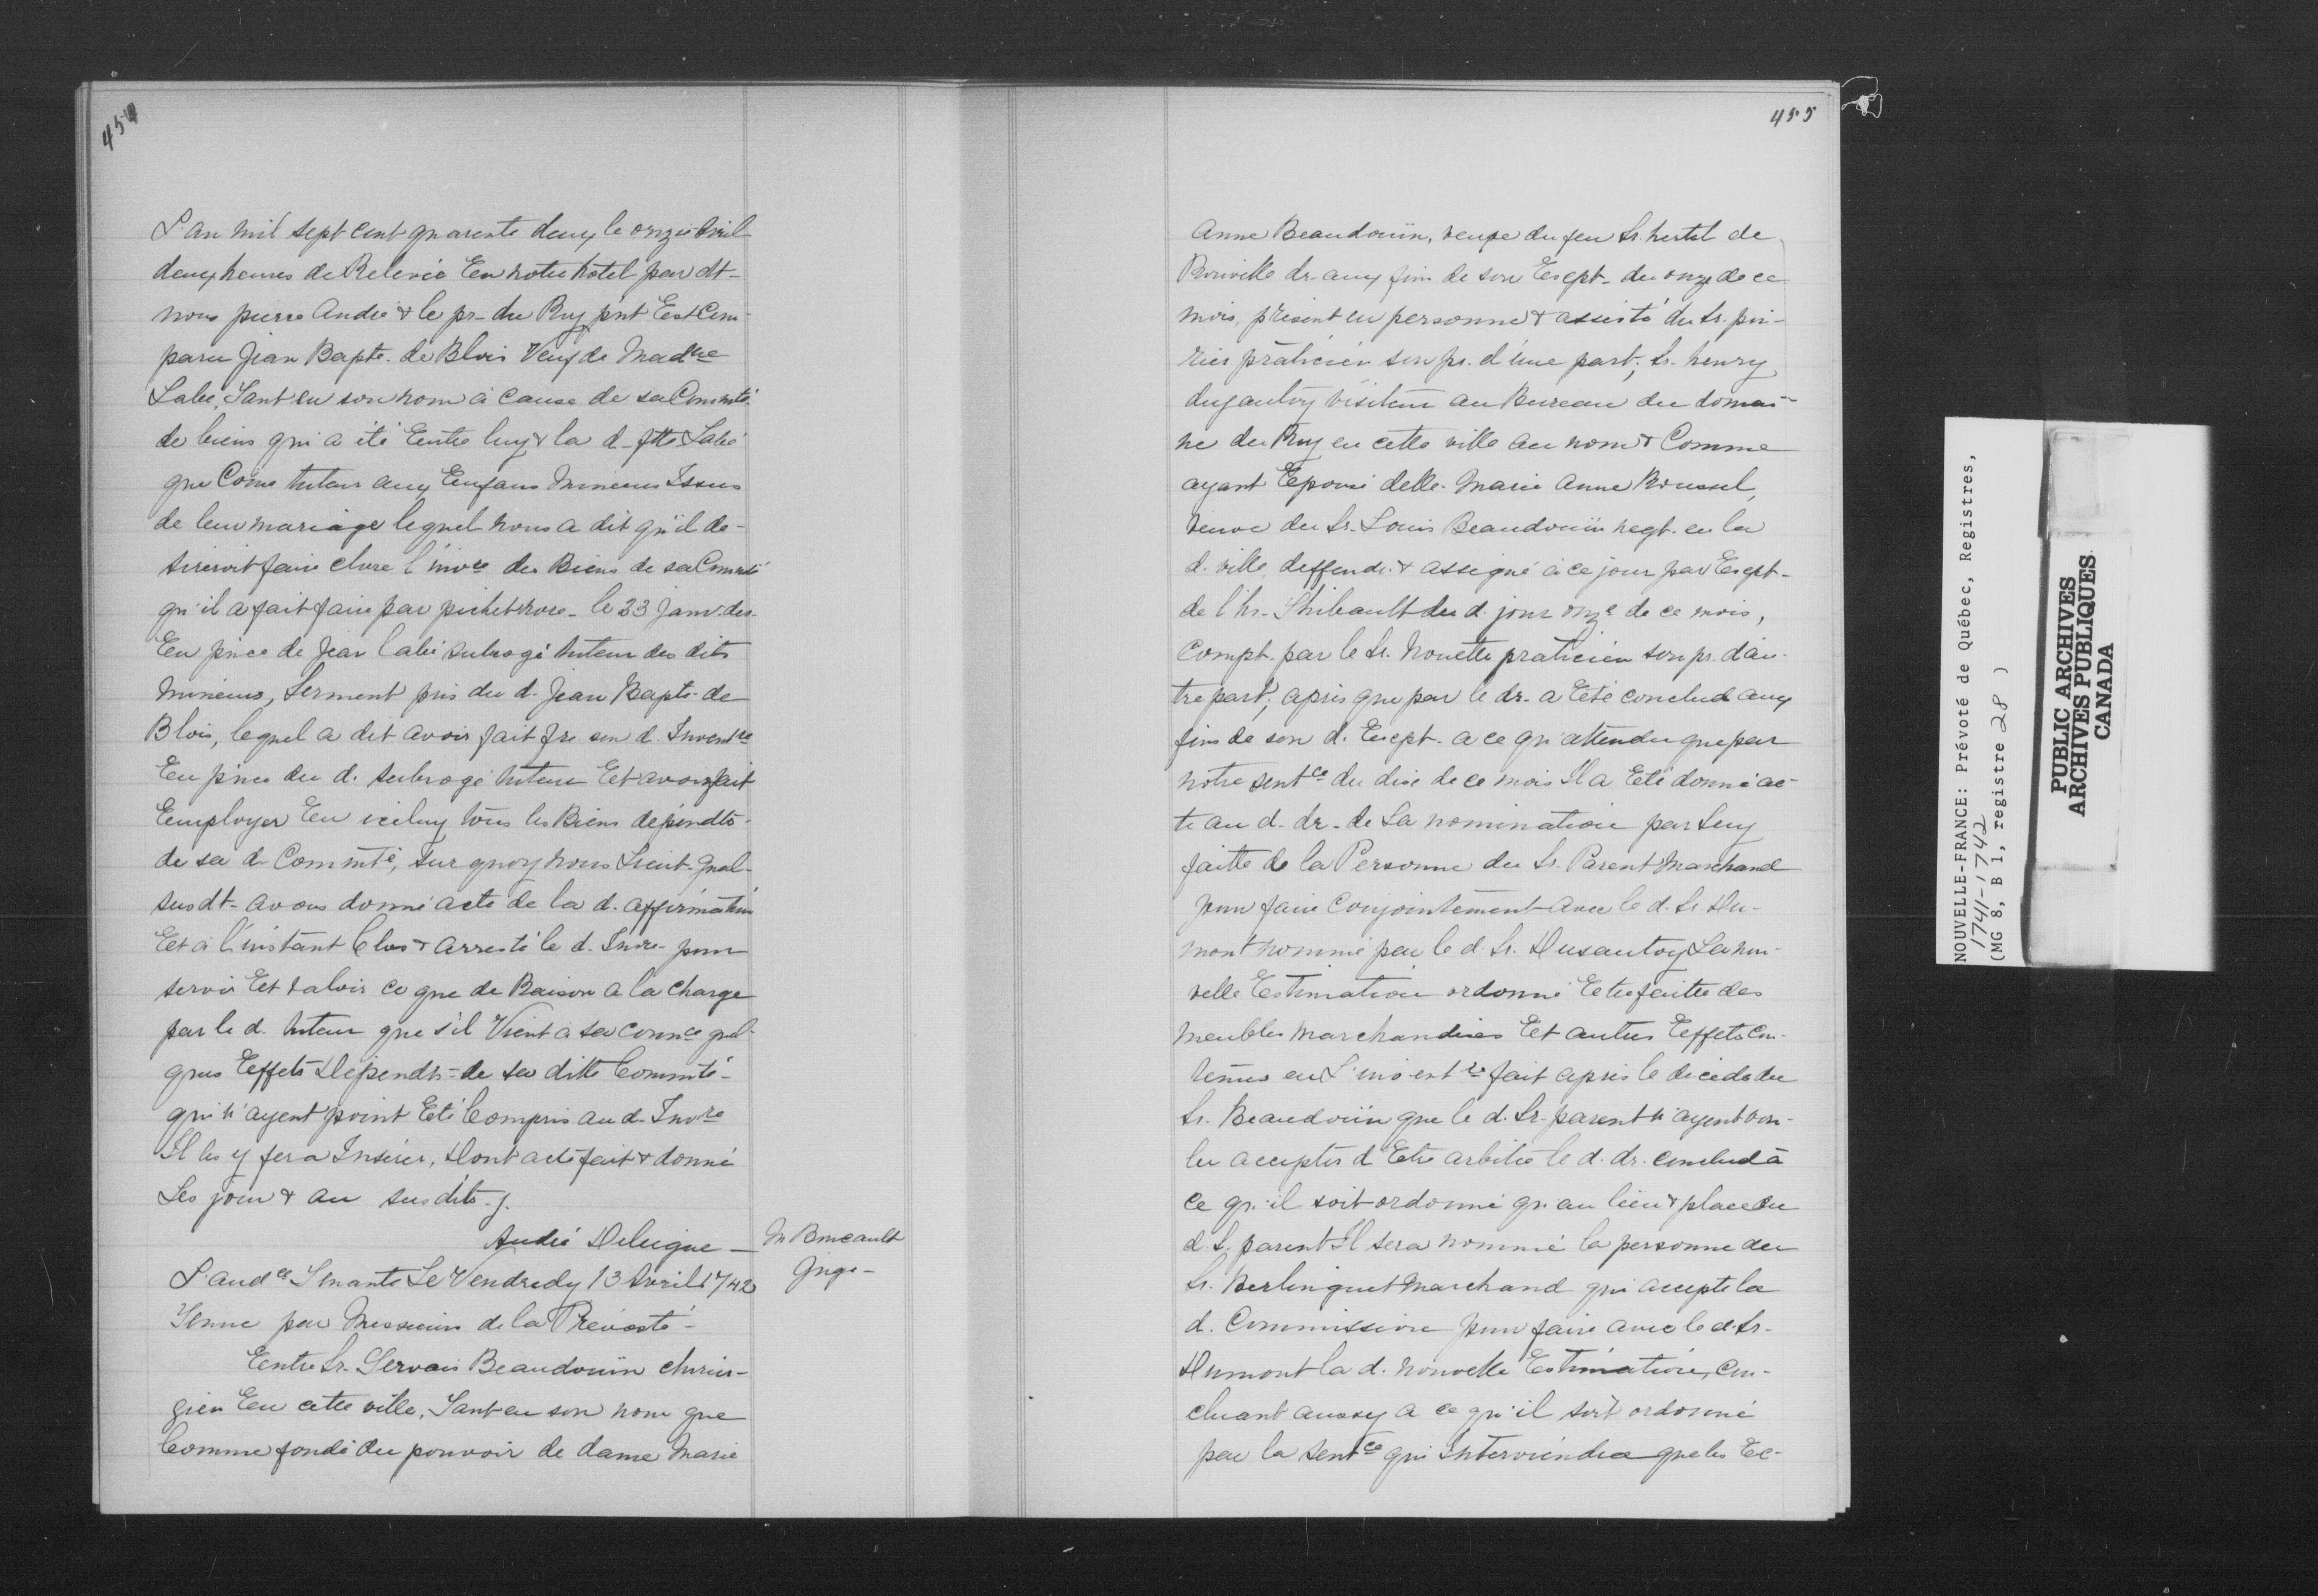 454
L'an mil sept cent quarente deux le onze avril
deux heures de Relevée En notre hotel par dt-
nous pierre André & le pr- du Roy pnt Est Com-
paru Jean Bapte. de Blois Veuf de Madne
Labé, Tant en son nom à cause de sa Commté-
de biens qui a été Eentre luy & la d- ftte Labé
que Come tuteur aux Eenfans Mineurs Issus
de leur mariage lequel nous a dit qu'il de-
sireroit faire clore l'invre des Biens de sa Commté
qu'il a fait faire par pichet nore- le 23 janv. der-
Een pnce de Jean labé subrogé tuteur des dits
Mineurs, Serment pris du d. Jean Bapte- de
Blois, lequel a dit avoir fait fre son d. Inventre
Een pnce du d. subrogé tuteur Eet avoir fait
Eemployer Een iceluy tous les Biens dépendts-
de sa d- Commté, sur quoy nous Lieut. gnal-
susdt- avons donné acte de la d. affirmation
Eet à l'instant Clos & arresté le d. Invre- pour
servir Eet valoir ce que de Raison a la charge
par le d. tuteur que s'il Vient à sa connce quel-
ques Eeffets Dépendts- de sa ditte Commté-
qui n'ayent point Eeté Compris au d. Invre
Il les y fera Insérer, Dont acte fait & donné
Les jour & an susdits-j.
André Deleigne -
N Boucault
Juge-
L'audce Tenante Le Vendredy 13 Avril 1742
Tenue par Messieurs de la Prévosté-
Eentre Sr. Gervais Beaudouin chirur-
gien Een cette ville, Tant en son nom que
Comme fondé du pouvoir de dame Marie
455
Anne Beaudouin, veuve du feu Sr. hertel de
Rouville dr- aux fins de son Eexpt- du onze de ce
mois, présent en personne & assisté du Sr. poi-
rier praticien son pr. d'une part; Sr. henry
dusautoy Visiteur au Bureau du domai-
ne du Roy en cette ville au nom & Comme
ayant Epousé delle. Marie Anne Roussel,
Veuve du Sr. Louis Beaudouin negt. en la
d. ville, deffendr. & assigné à ce jour par Eexpt-
de l'hr- Thibault du d. jour onze de ce mois,
Compt. par le Sr. Nouette praticien son pr. d'au-
tre part; après que par le dr- a Eeté conclud aux
fins de son d. Eexpt- a ce qu'attendu que par
notre sentce du dixe de ce mois Il a Eeté donné ac-
te au d. dr- de La nomination par Luy
faitte de la Personne du Sr. Parent Marchand
pour faire Conjointement avec le d. Sr Du-
mont nommé par le d. Sr. Dusautoy La nou-
velle Eestimation ordonné Eetre faitte des
Meubles Marchandises Eet autres Eeffets Con-
tenus en L'inventre fait après le décéds du
Sr. Beaudouin que le d. Sr. parent n'ayent vou-
lu accepter d'Eetre arbitre le d. dr. conclud à
ce qu'il soit ordonné qu'au lieu & place du
d. S. parent Il sera nommé la personne du
Sr. Berlinguet Marchand qui accepte la
d. Commission pour faire avec le d. Sr-
Dumont la d. nouvelle Eestimation, Con-
cluant aussy a ce qu'il soit ordonné
par la sentce qui Interviendra que les Ec-
NOUVELLE-FRANCE: Prévoté de Québec, Registres,
1741-1742
(MG 8, B 1, registre 28 )
PUBLIC ARCHIVES
ARCHIVES PUBLIQUES
CANADA